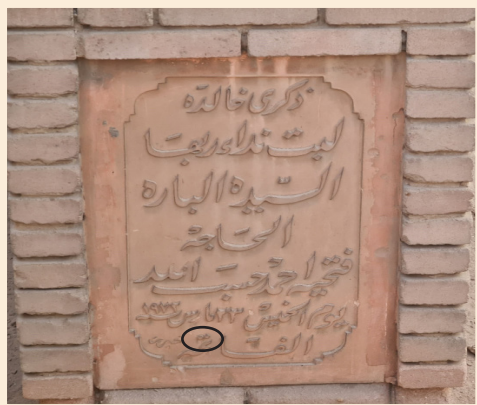 ذكرى خالدة
لبت نداء ربها
السيدة البارة
الحاجة
فتحية احمد حسب الله
يوم الخميس
الفاتحة